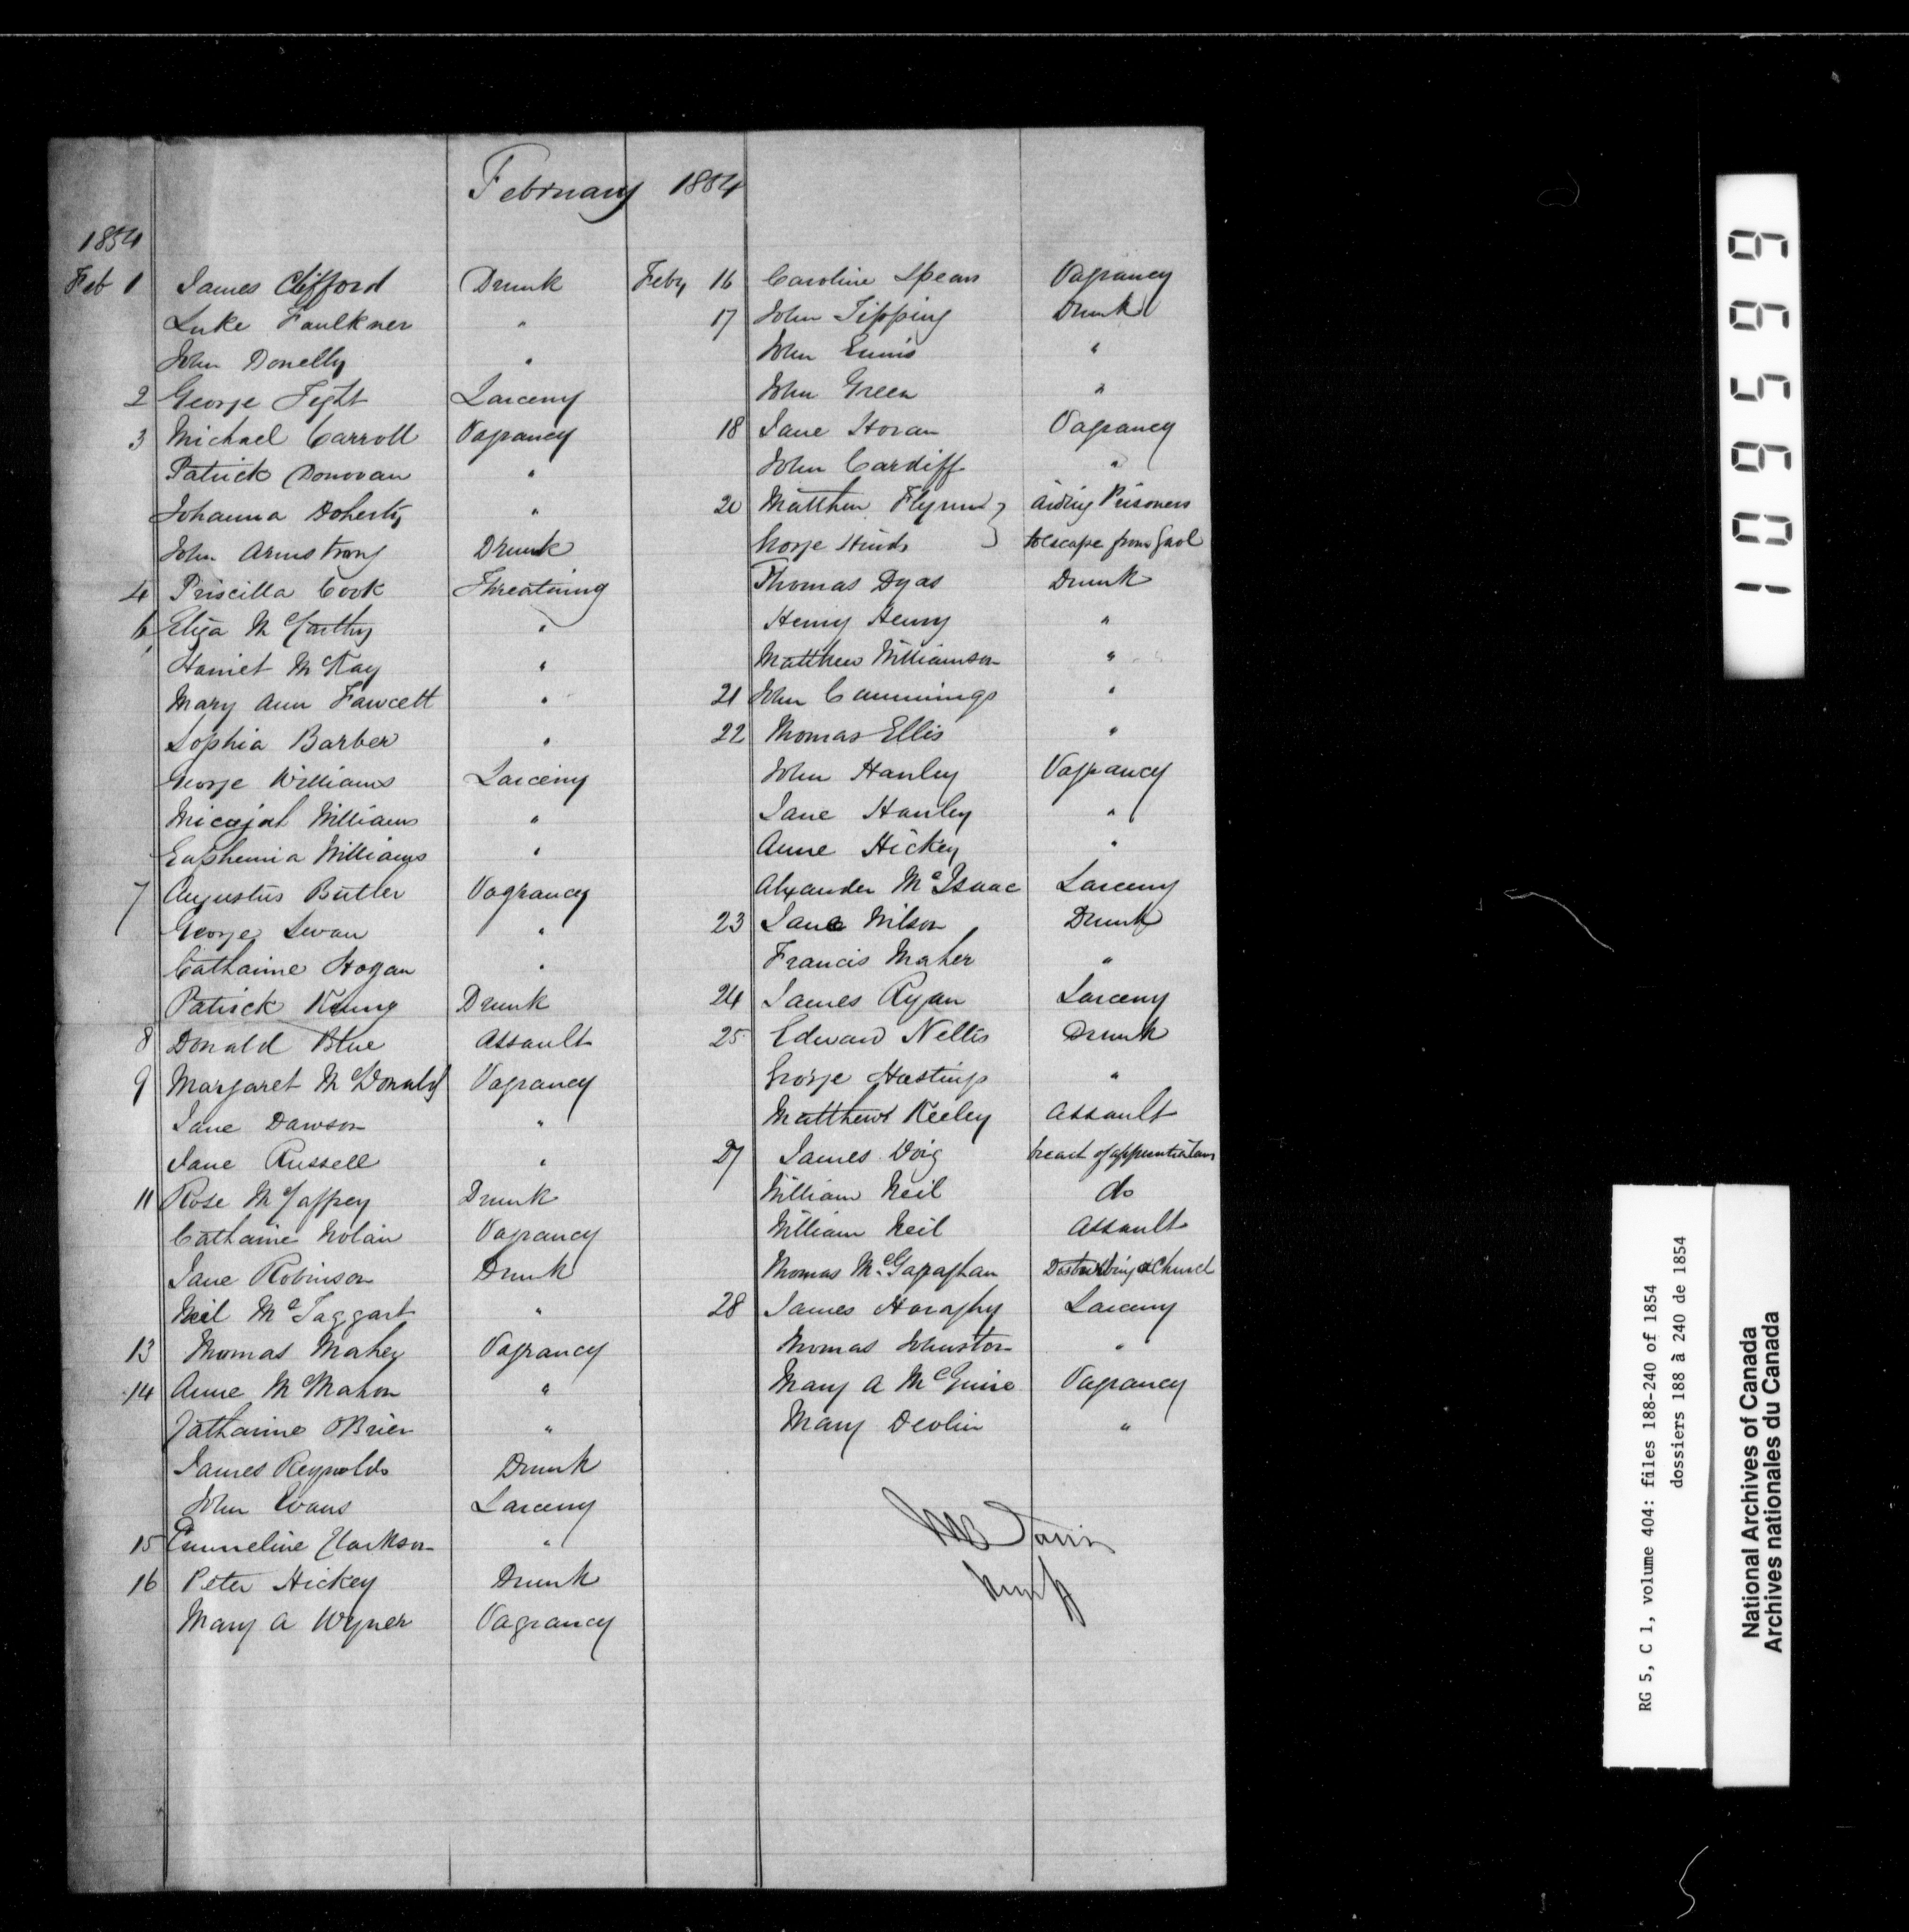 February 1854
1854
Feb 1 James Clifford Drunk
Luke Faulkner "
John Donelly "
2 George Fight Larceny
3 Michael Carroll Vagrancy
Patrick Donovan "
Johanna Doherty "
John Armstrong Drunk
4 Priscilla Cook Threatning
6 Eliza McCarthy "
Harriet McKay "
Mary Ann Fawcett "
Sophia Barber "
George Williams Larceny
Micajah Williams "
Euphemia Williams "
7 Augustus Butler Vagrancy
George Swan "
Catharine Hogan "
Patrick Drunk
8 Donald Blue Assault
9 Margaret McDonald Vagrancy
Jane Dawson "
Jane Russell "
11 Rose McCaffrey Drunk
Catharine Nolan Vagrancy
Jane Robinson Drunk
Neil McTaggart "
13 Thomas Maher Vagrancy
14 Anne McMahon "
Catharine OBrien "
James Reynolds Drunk
John Evans Larceny
15 Emmeline Clarkson "
16 Peter Hickey Drunk
Mary A Wyner Vagrancy
Feby 16 Caroline Spears Vagrancy
17 John Tipping Drunk
John Ennis "
John Green "
18 Jane Horan Vagrancy
John Cardiff "
20 Matthew Flynn } Aiding Prisoners
George Hinds } to escape from Gaol
Thomas Dyas Drunk
Henry Henry "
Matthew Williamson "
21 John Cummings "
22 Thomas Ellis "
John Hanley Vagrancy
Jane Hanley "
Anne Hickey "
Alexander McIsaac Larceny
23 Jane Wilson Drunk
Francis Maher "
24 James Ryan Larceny
25 Edward Nellis Drunk
George Hastings "
Matthew Keeley Assault
27 James Doig of
William Neil do
William Neil Assault
Thomas McGaraghan Church
28 James Haraghy Larceny
Thomas Johnston "
Mary A McGuire Vagrancy
Mary Devlin "
109599
RG 5, C 1, volume 404: files 188-240 of 1854
dossiers 188 à 240 de 1854
National Archives of Canada
Archives nationales du Canada